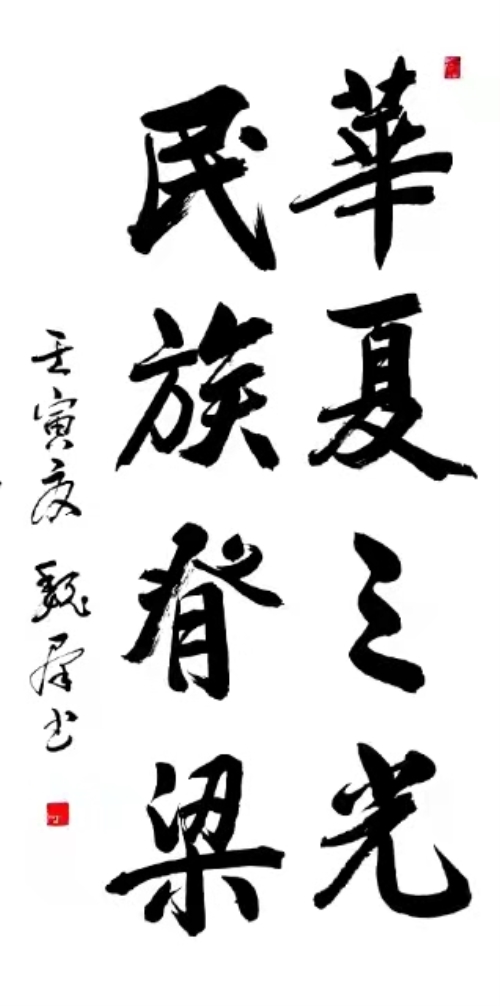 華夏之光
民族脊梁
壬寅夏 魏群书